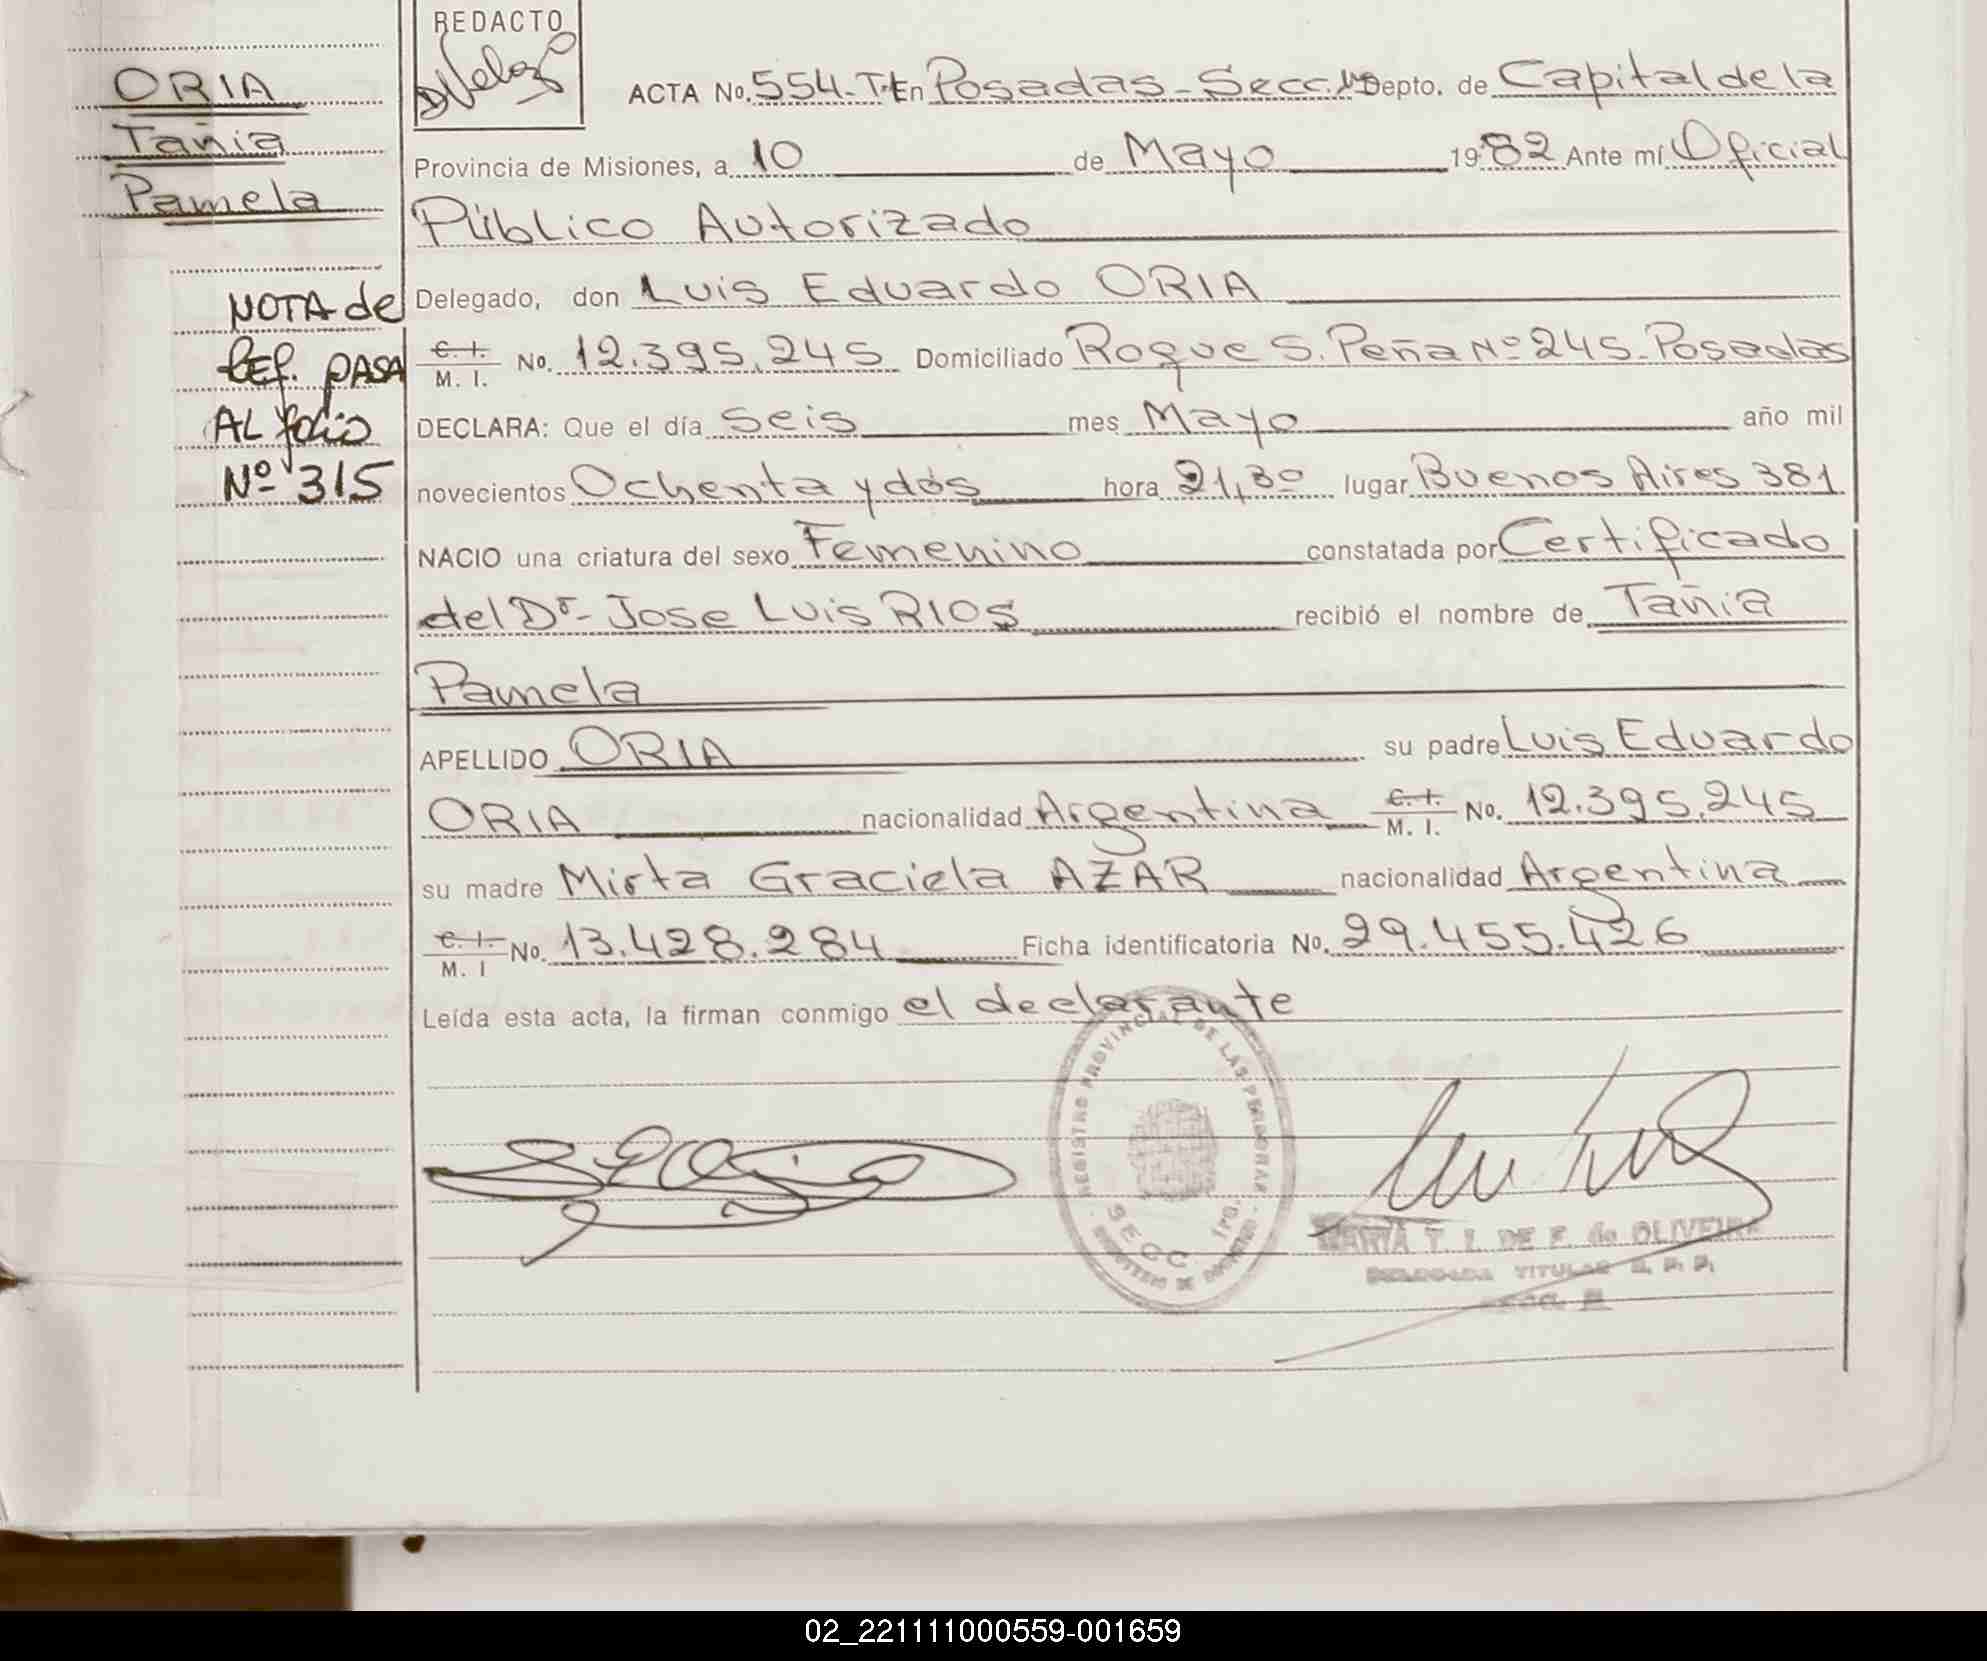 REDACTO
ORIA
Tañia
Pamela
NOTA de
REF. PASA
AL folio
Nº 315
ACTA No. 554-Tº I En Posadas - Secc. 1ª Depto. de Capital de la
Provincia de Misiones, a 10 de Mayo 1982 Ante mí Oficial
Público Autorizado
Delegado, don Luis Eduardo ORIA
C. I. M. I. No. 12.395.245 Domiciliado Roque S. Peña Nº 245 - Posadas
DECLARA: Que el día seis mes Mayo año mil
novecientos Ochenta y dós hora 21,30 lugar Buenos Aires 381
NACIO una criatura del sexo Femenino constatada por Certificado
del Dr- Jose Luis RIOS recibió el nombre de Tañia
Pamela
APELLIDO ORIA su padre Luis Eduardo
ORIA nacionalidad Argentina C. I. M. I. No. 12.395.245
su madre Mirta Graciela AZAR nacionalidad Argentina
C. I. M. I No. 13.428.284 Ficha identificatoria No. 29.455.426
Leída esta acta, la firman conmigo el declarante
REGISTRO PROVINCIAL DE LAS PERSONAS
SECC. 1ra.
MARIA T. I. DE F. de OLIVEIRA
DELEGADA TITULAR R. P. P.
02_221111000559-001659